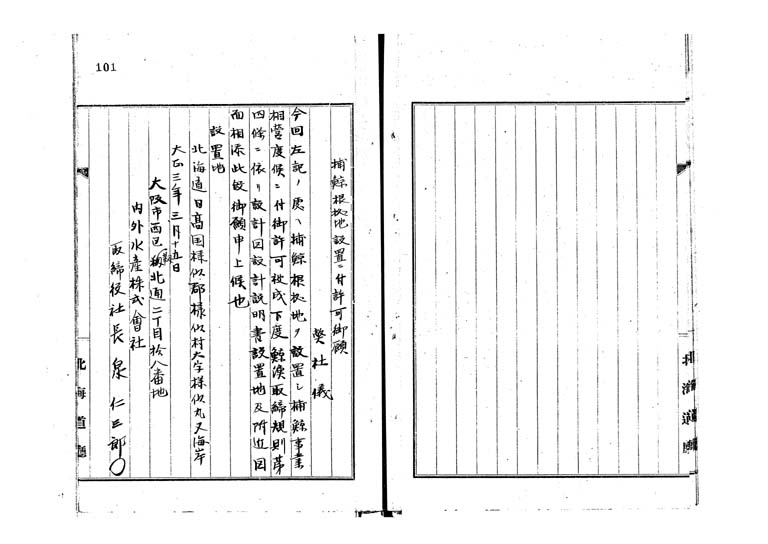 101
捕鯨根拠地設置ニ付許可御願
弊社儀
今回左記ノ處ヘ捕鯨根拠地ヲ設置シ捕鯨事業
相営度候ニ付御許可被成下度鯨漁取締規則第
四條ニ依リ設計図設計説明書設置地及附近図
面相添此段御願申上候也
設置地
北海道日高国様似郡様似村大字様似丸又海岸
大正三年三月十五日
大阪市西区 北通二丁目拾八番地
内外水産株式會社
取締役社長 泉仁三郎
北海道廳